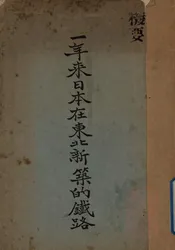 一年來日本在東北新築的鐵路